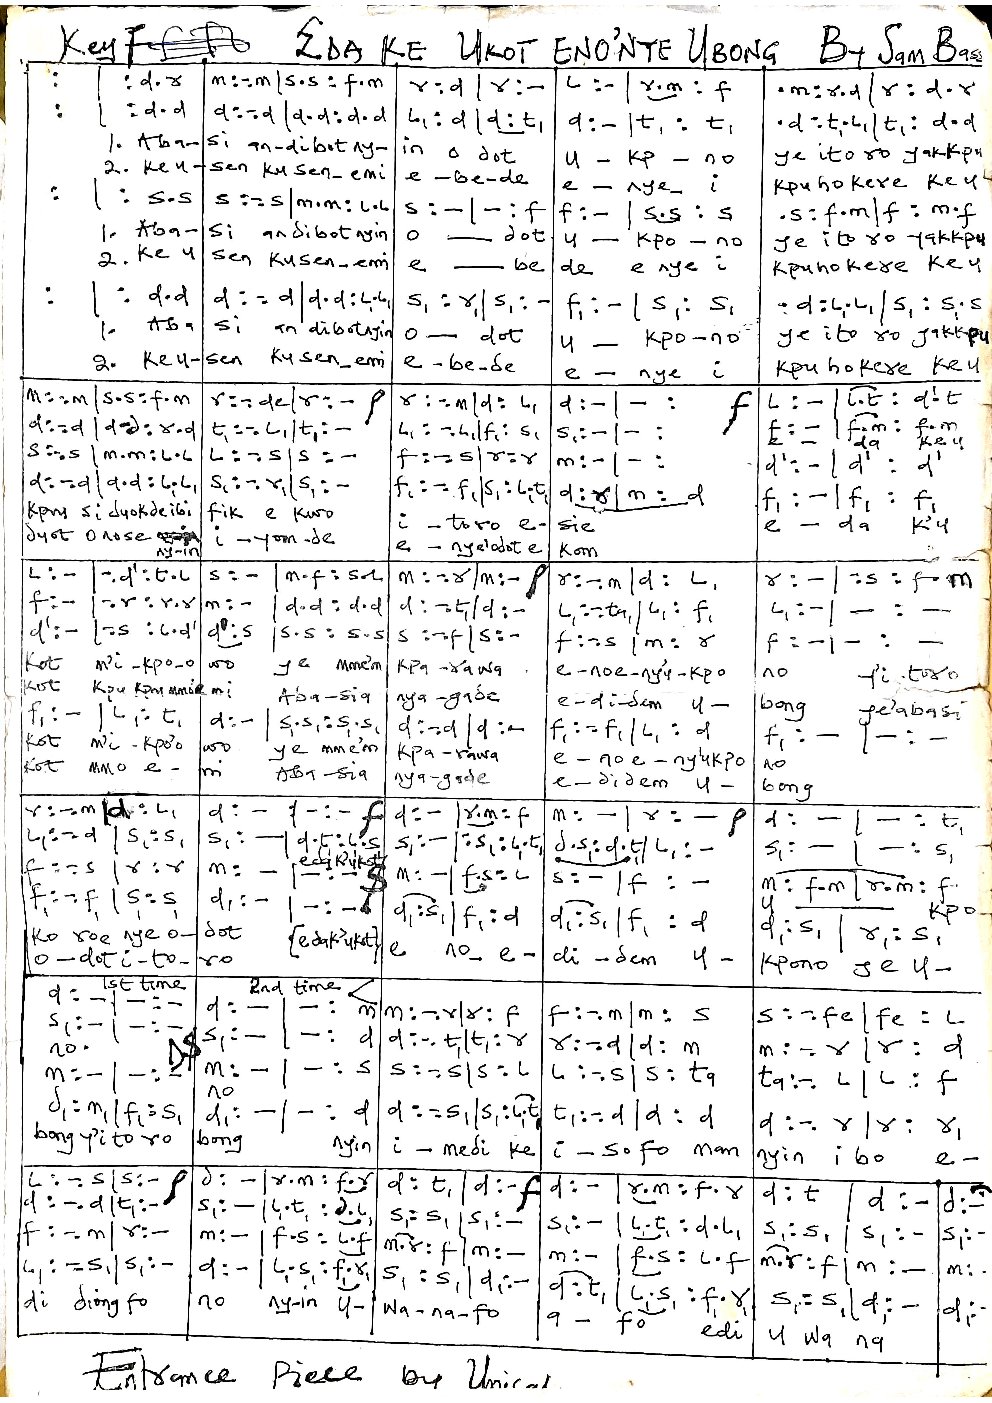 Key F EDA KE UKOT ENO'NTE UBONG By Sam Bas
: | : d.r | m:-.m | s.s : f.m | r:d | r:- | L:- | r.m : f | .m:r.d | r : d.r
: | : d.d | d:-.d | d.d:d.d | L₁:d | d:t₁ | d:- | t₁ : t₁ | .d:t₁.L₁ | t₁ : d.d
1. Aba-si an-dibot ny-in o dot u - kp - no ye ito ro yakkpu
2. Keu-sen Kusen-emi e-be-de e - nye i kpuhokere Keu
: | : s.s | s:-.s | m.m:L.L | s:- | - : f | f:- | s.s : s | .s:f.m | f : m.f
1. Aba-si andibotnyin o — dot u - kpo-no ye ito ro yakkpu
2. Keu sen Kusen-emi e — be de e nye i kpuhokere Keu
: | : d.d | d:-.d | d.d:L₁.L₁ | s₁:r₁ | s₁:- | f₁:- | s₁ : s₁ | .d:L₁.L₁ | s₁ : s.s
1. Aba si andibotnyin o — dot u - kpo-no ye ito ro yakkpu
2. Keu-sen Kusen-emi e-be-de e - nye i kpuhokere Keu
m:-.m | s.s:f.m | r:-.de | r:- p | r:-.m | d:L₁ | d:- | - : f | L:- | L.t : d'.t
d:-.d | d.d:r.d | t₁:-.L₁ | t₁:- | L₁:-.L₁ | f₁:s₁ | s₁:- | - : | f:- | f.m : f.m
e - da Keu
s:-.s | m.m:L.L | L:-.s | s:- | f:-.s | r:r | m:- | - : | d':- | d' : d'
d:-.d | d.d:L₁.L₁ | s₁:-.r₁ | s₁:- | f₁:-.f₁ | s₁:L₁.t₁ | d:r | m : d | f₁:- | f₁ : f₁
kpru si duokdeibi fik e kwo i-toro e-sie e - da K'u
dyot o nose ny-in i-yom-de e - nye'odot e kom
L:- | -.d':t.L | s:- | m.f:s.L | m:-.r | m:- p | r:-.m | d:L₁ | r:- | -.s:f.m
f:- | -.r:r.r | m:- | d.d:d.d | d:-.t₁ | d:- | L₁:-.ta₁ | L₁:f₁ | L₁:- | - : -
d':- | -.s:L.d' | d':s | s.s:s.s | s:-.f | s:- | f:-.s | m:r | f:- | - : -
Kot m'i-kpo-o wo ye mme'm kpa-rawa e-noe-nyu-kpo no y'i-toro
Kot kpukpru mmoe mi Aba-sia nya-gade e-di-dem u- bong ye'abasi
f₁:- | L₁:t₁ | d:- | s₁.s₁:s₁.s₁ | d:-.d | d:- | f₁:-.f₁ | L₁:d | f₁:- | - : -
Kot m'i-kpo'o wo ye mme'm kpa-rawa e-noe-ny'ukpo no
Kot mmo e - mi Aba-sia nya-gade e-didem u- bong
r:-.m | d:L₁ | d:- | - : - f | d:- | r.m:f | m:- | r:- p | d:- | - : t₁
L₁:-.d | s₁:s₁ | s₁:- | d.t₁:L₁.s₁ | s₁:- | s₁:L₁.t₁ | d.s₁:d.t₁ | L₁:- | s₁:- | - : s₁
edak'ukot
f:-.s | r:r | m:- | - : - | m:- | f.s:L | s:- | f:- | m:f.m | r.m:f
u kpo
f₁:-.f₁ | s₁:s₁ | d₁:- | - : - | d₁:s₁ | f₁:d | d₁:s₁ | f₁:d | d₁:s₁ | r₁:s₁
ko roe nye o- dot {edak'ukot} e no-e- di-dem u- kpono ye u-
o-dot i-to- ro
1st time 2nd time
d:- | - : - | d:- | - : m | m:-.r | r:f | f:-.m | m:s | s:-.fe | fe:L
s₁:- | - : - D$ | s₁:- | - : d | d:-.t₁ | t₁:r | r:-.d | d:m | m:-.r | r:d
no. no
m:- | - : - | m:- | - : s | s:-.s | s:L | L:-.s | s:ta | ta:-.L | L:f
d₁:m₁ | f₁:s₁ | d₁:- | - : d | d:-.s₁ | s₁:L₁.t₁ | t₁:-.d | d:d | d:-.r | r:r₁
bong y'ito ro bong nyin i-medi ke i-sofo mam nyin ibo e-
L:-.s | s:- p | d:- | r.m:f.r | d:t₁ | d:- f | d:- | r.m:f.r | d:t | d:- | d:-
d:-.d | t₁:- | s₁:- | L₁.t₁:d.L₁ | s₁:s₁ | s₁:- | s₁:- | L₁.t₁:d.L₁ | s₁:s₁ | s₁:- | s₁:-
f:-.m | r:- | m:- | f.s:L.f | m.r:f | m:- | m:- | f.s:L.f | m.r:f | m:- | m:-
L₁:-.s₁ | s₁:- | d:- | L₁.s₁:f₁.r₁ | s₁:s₁ | d₁:- | d:t₁ | L₁.s₁:f₁.r₁ | s₁:s₁ | d₁:- | d₁:-
di diongfo no ny-in u- wa-na-fo a - fo edi u wa na
Entrance Piece by Unical